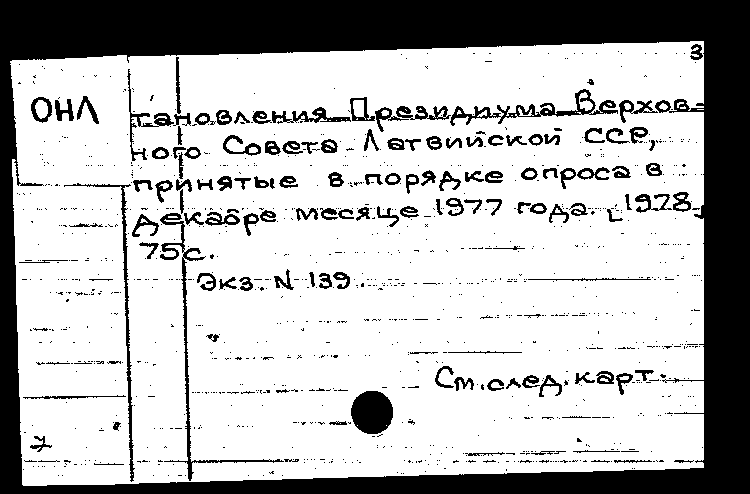 3
ОНЛ
тановления Президиума Верхов-
ного Совета Латвийской ССР,
принятые в порядке опроса в
декабре месяце 1977 года. [1978]
75с.
Экз. N 139.
См. след. карт.